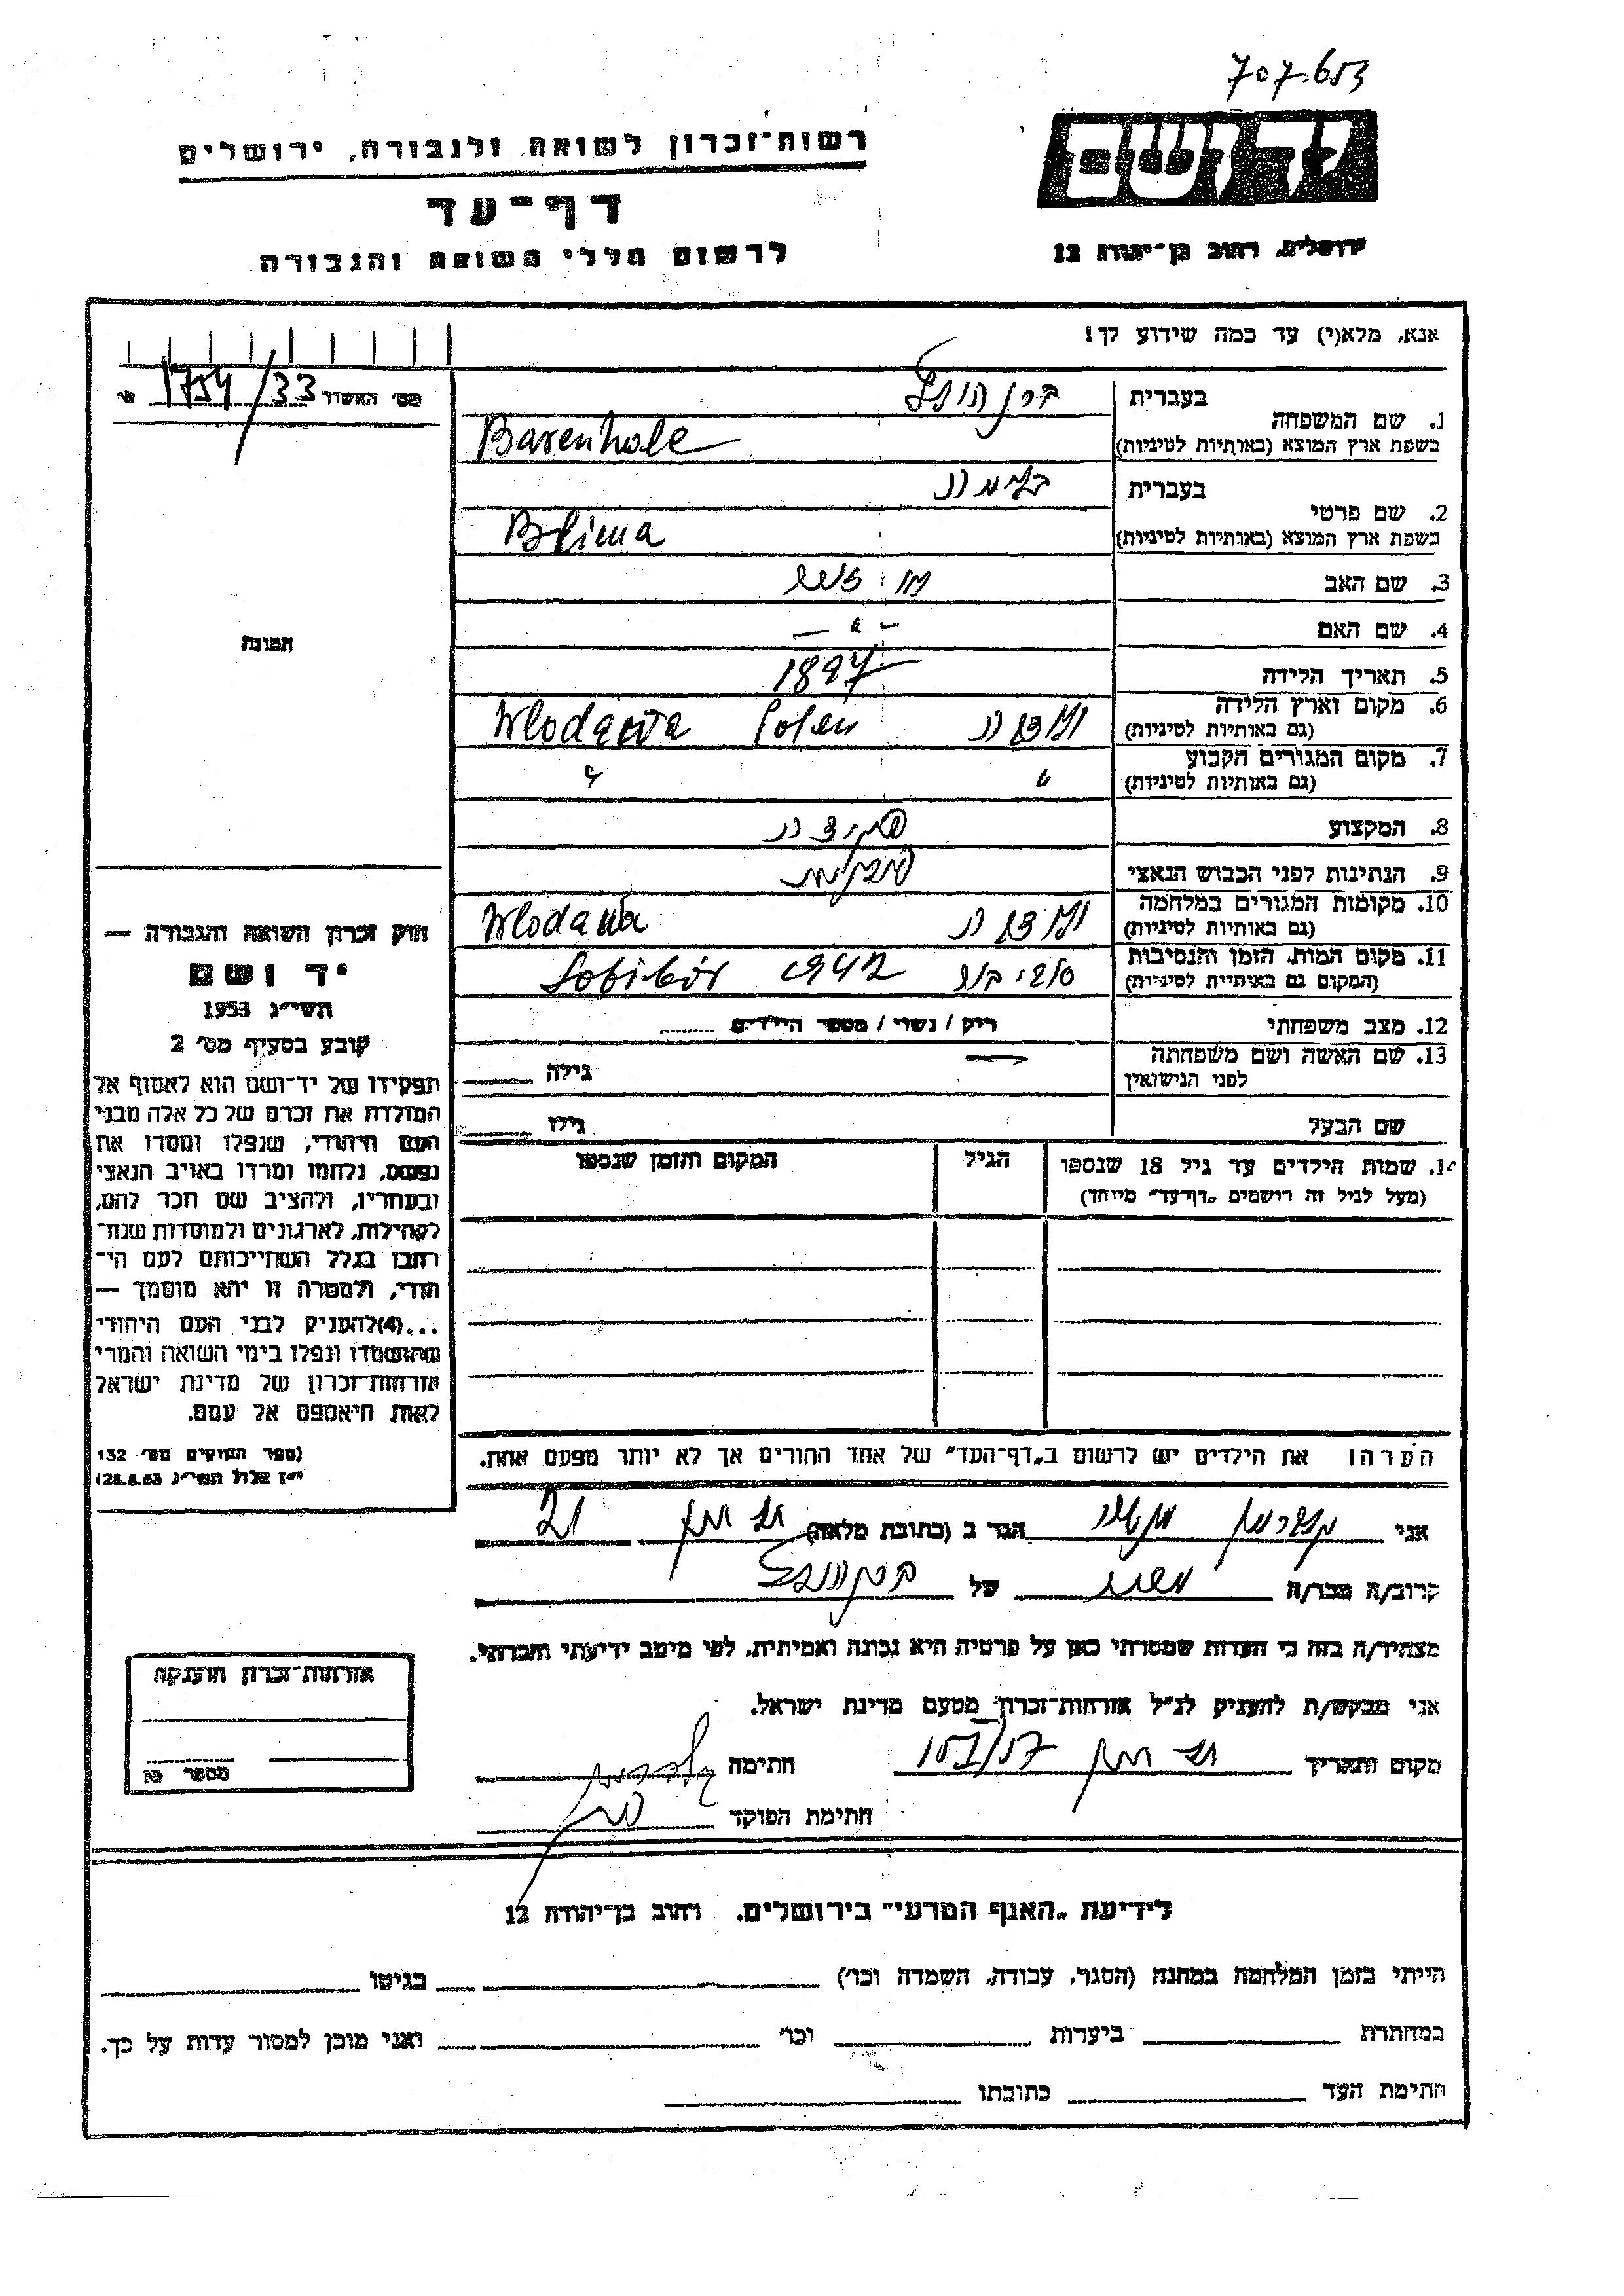 707.653
יד ושם
רשות־זכרון לשואה ולגבורה, ירושלים
דף־עד
לרשום חללי השואה והגבורה
ירושלים, רחוב בן־יהודה 12
אנא, מלא(י) עד כמה שידוע לך!
מס׳ האשור 1754/33 №
1. שם המשפחה
בעברית
בשפת ארץ המוצא (באותיות לטיניות) Barenholc
2. שם פרטי
בעברית בלימה
בשפת ארץ המוצא (באותיות לטיניות) Blima
3. שם האב
4. שם האם — " —
5. תאריך הלידה 1897
6. מקום וארץ הלידה
(גם באותיות לטיניות) Wlodawa Polen
7. מקום המגורים הקבוע
(גם באותיות לטיניות) " "
8. המקצוע
9. הנתינות לפני הכבוש הנאצי פולנית
10. מקומות המגורים במלחמה
(גם באותיות לטיניות) Wlodawa
11. מקום המות, הזמן והנסיבות
(המקום גם באותיית לטיניות) סוביבור 1942 Sobibór
12. מצב משפחתי רוק / נשוי / מספר הילדים
13. שם האשה ושם משפחתה
לפני הנישואין — גילה
שם הבעל גילו
14. שמות הילדים עד גיל 18 שנספו הגיל המקום והזמן שנספו
(מעל לגיל זה רושמים „דף־עד״ מיוחד)
תמונה
חוק זכרון השואה והגבורה —
יד ושם
תשי״ג 1953
קובע בסעיף מס׳ 2
תפקידו של יד־ושם הוא לאסוף אל
המולדת את זכרם של כל אלה מבני
העם היהודי, שנפלו ומסרו את
נפשם, נלחמו ומרדו באויב הנאצי
ובעוזריו, ולהציב שם וזכר להם,
לקהילות, לארגונים ולמוסדות שנח־
רבו בגלל השתייכותם לעם הי־
הודי, ולמטרה זו יהא מוסמך —
...(4)להעניק לבני העם היהודי
שהושמדו ונפלו בימי השואה והמרי
אזרחות־זכרון של מדינת ישראל
לאות היאספם אל עמם.
(ספר החוקים מס׳ 132
י״ז אלול תשי״ג 28.8.53)
הערה! את הילדים יש לרשום ב„דף־העד״ של אחד ההורים אך לא יותר מפעם אחת.
אני הגר ב (כתובת מלאה)
קרוב/ה מכר/ה של ברנהולץ
מצהיר/ה בזה כי העדות שמסרתי כאן על פרטיה היא נכונה ואמיתית, לפי מיטב ידיעתי והכרתי.
אני מבקש/ת להעניק לנ״ל אזרחות־זכרון מטעם מדינת ישראל.
מקום ותאריך חתימה
חתימת הפוקד
אזרחות־זכרון הוענקה
מספר №
לידיעת „האגף המדעי״ בירושלים. רחוב בן־יהודה 12
הייתי בזמן המלחמה במחנה (הסגר, עבודה, השמדה וכו׳) בגיטו
במחתרת ביערות וכו׳ ואני מוכן למסור עדות על כך.
חתימת העד כתובתו